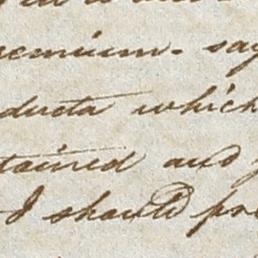 remium. say
ducts which
tained and
I should pre